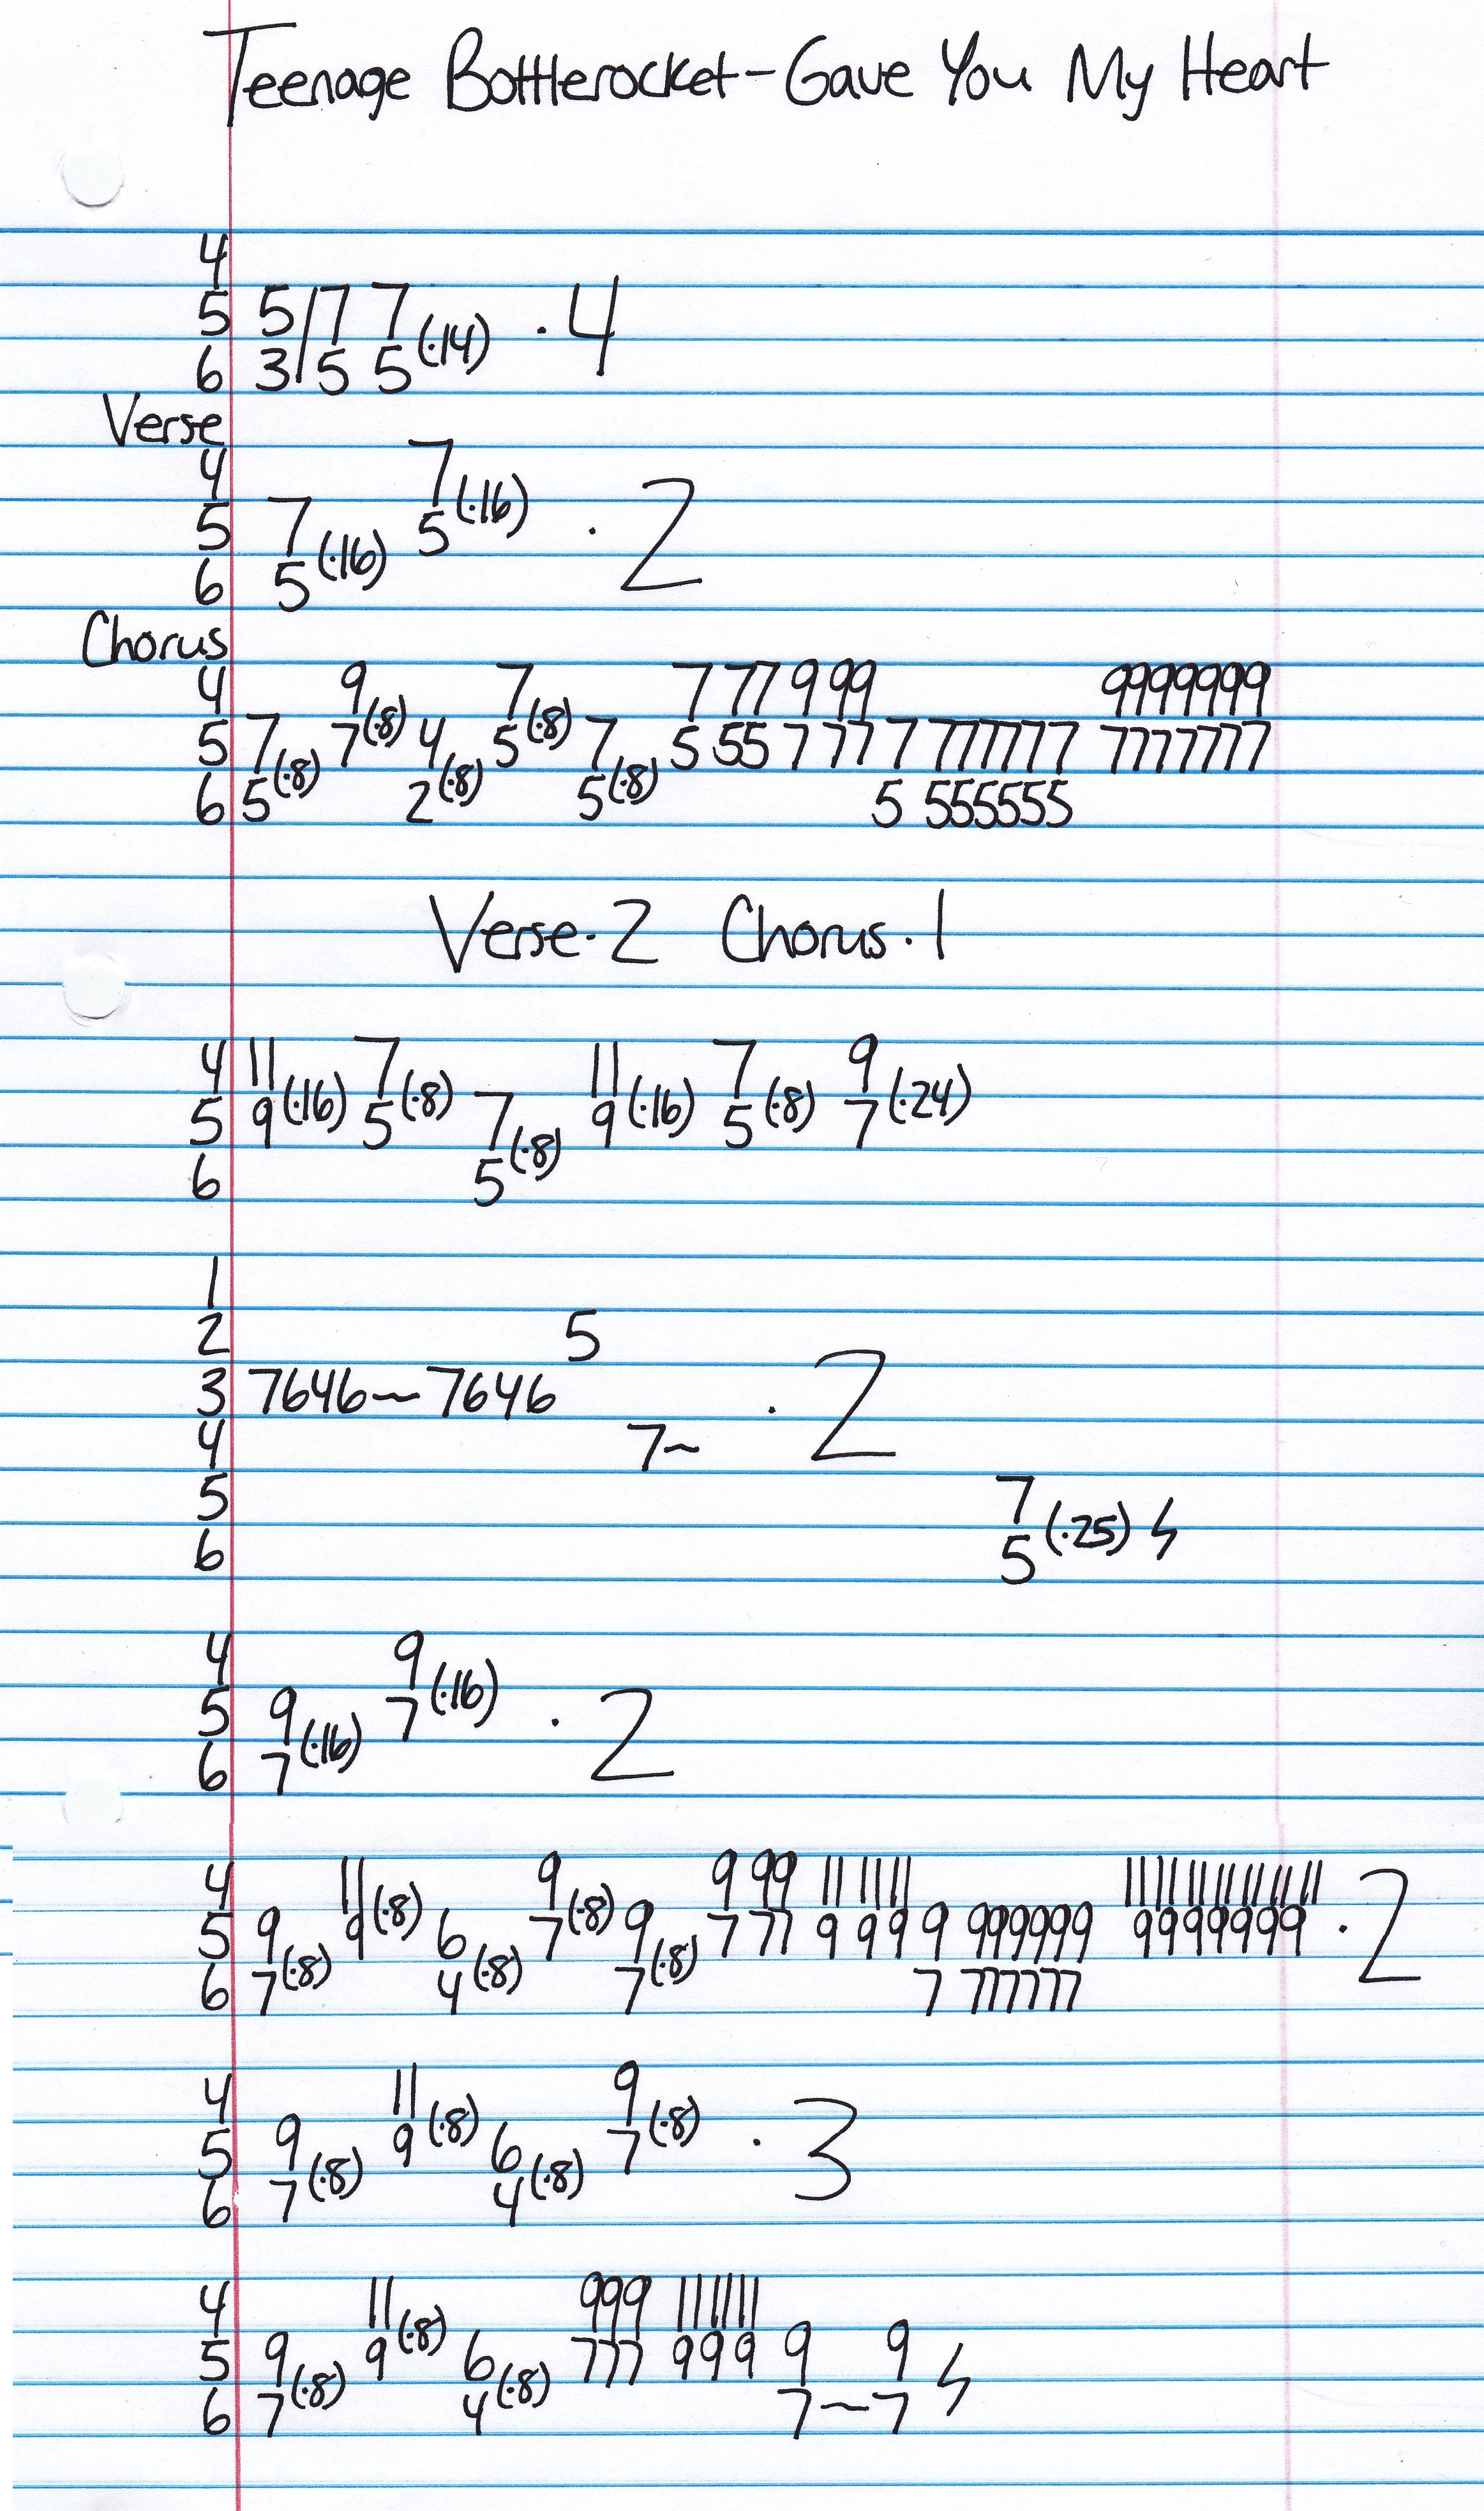 Teenage Bottlerocket-Gave You My Heart
4
5 5/7 7(·14) · 4
6 3/5 5
Verse
4 7(·16)
5 7(·16) 5 · 2
6 5
Chorus
4 9(·8) 7(·8) 7 77 9 99 9999999
5 7(·8) 7 4(·8) 5 7(·8) 5 55 7 77 7 777777 7777777
6 5 2 5 5 555555
Verse·2 Chorus·1
4 11(·16) 7(·8) 11(·16) 7(·8) 9(·24)
5 9 5 7(·8) 9 5 7
6 5
1
2 5
3 7646~7646 · 2
4 7~
5 7(·25) ϟ
6 5
4 9(·16)
5 9(·16) 7 · 2
6 7
4 11(·8) 9(·8) 9 99 11 1111 11111111111111
5 9(·8) 9 6(·8) 7 9(·8) 7 77 9 99 9 999999 9999999 · 2
6 7 4 7 7 777777
4 11(·8) 9(·8)
5 9(·8) 9 6(·8) 7 · 3
6 7 4
4 11(·8) 999 111111
5 9(·8) 9 6(·8) 777 999 9 9 ϟ
6 7 4 7~7